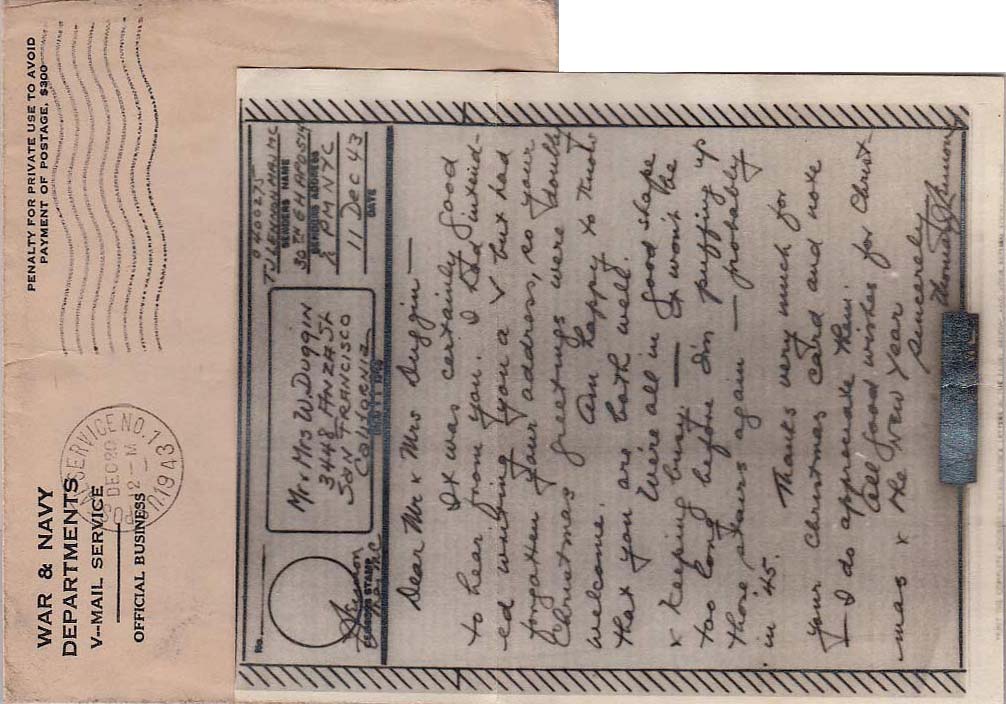 WAR & NAVY
DEPARTMENTS
V--MAIL SERVICE
OFFICIAL BUSINESS
PENALTY FOR PRIVATE USE TO AVOID
PAYMENT OF POSTAGE, $300
SERVICE NO. 13
DEC 20
12 - M
1943
No.
CENSOR'S STAMP
Mr & Mrs W. DUGGIN
3448 ANZA ST
SAN FRANCISO
CALIFORNIA
0400275
TJ LENNON MAJ MC
SENDERS NAME
30TH GH APO 514
SENDERS ADDRESS
% PM NYC
11 Dec 43
DATE
Dear Mr & Mrs Duggin —
It was certainly good
to hear from you. I had intend-
ed writing you a V but had
forgotten your address, so your
Christmas greetings were doubly
welcome. Am happy to know
that you are both well.
We're all in good shape
& keeping busy — It won't be
too long before I'm puffing up
those stairs again — probably
in 45.
Thanks very much for
your Christmas card and note
— I do appreciate them
All good wishes for Christ-
mas & the New Year
Sincerely
Thomas J Lennon